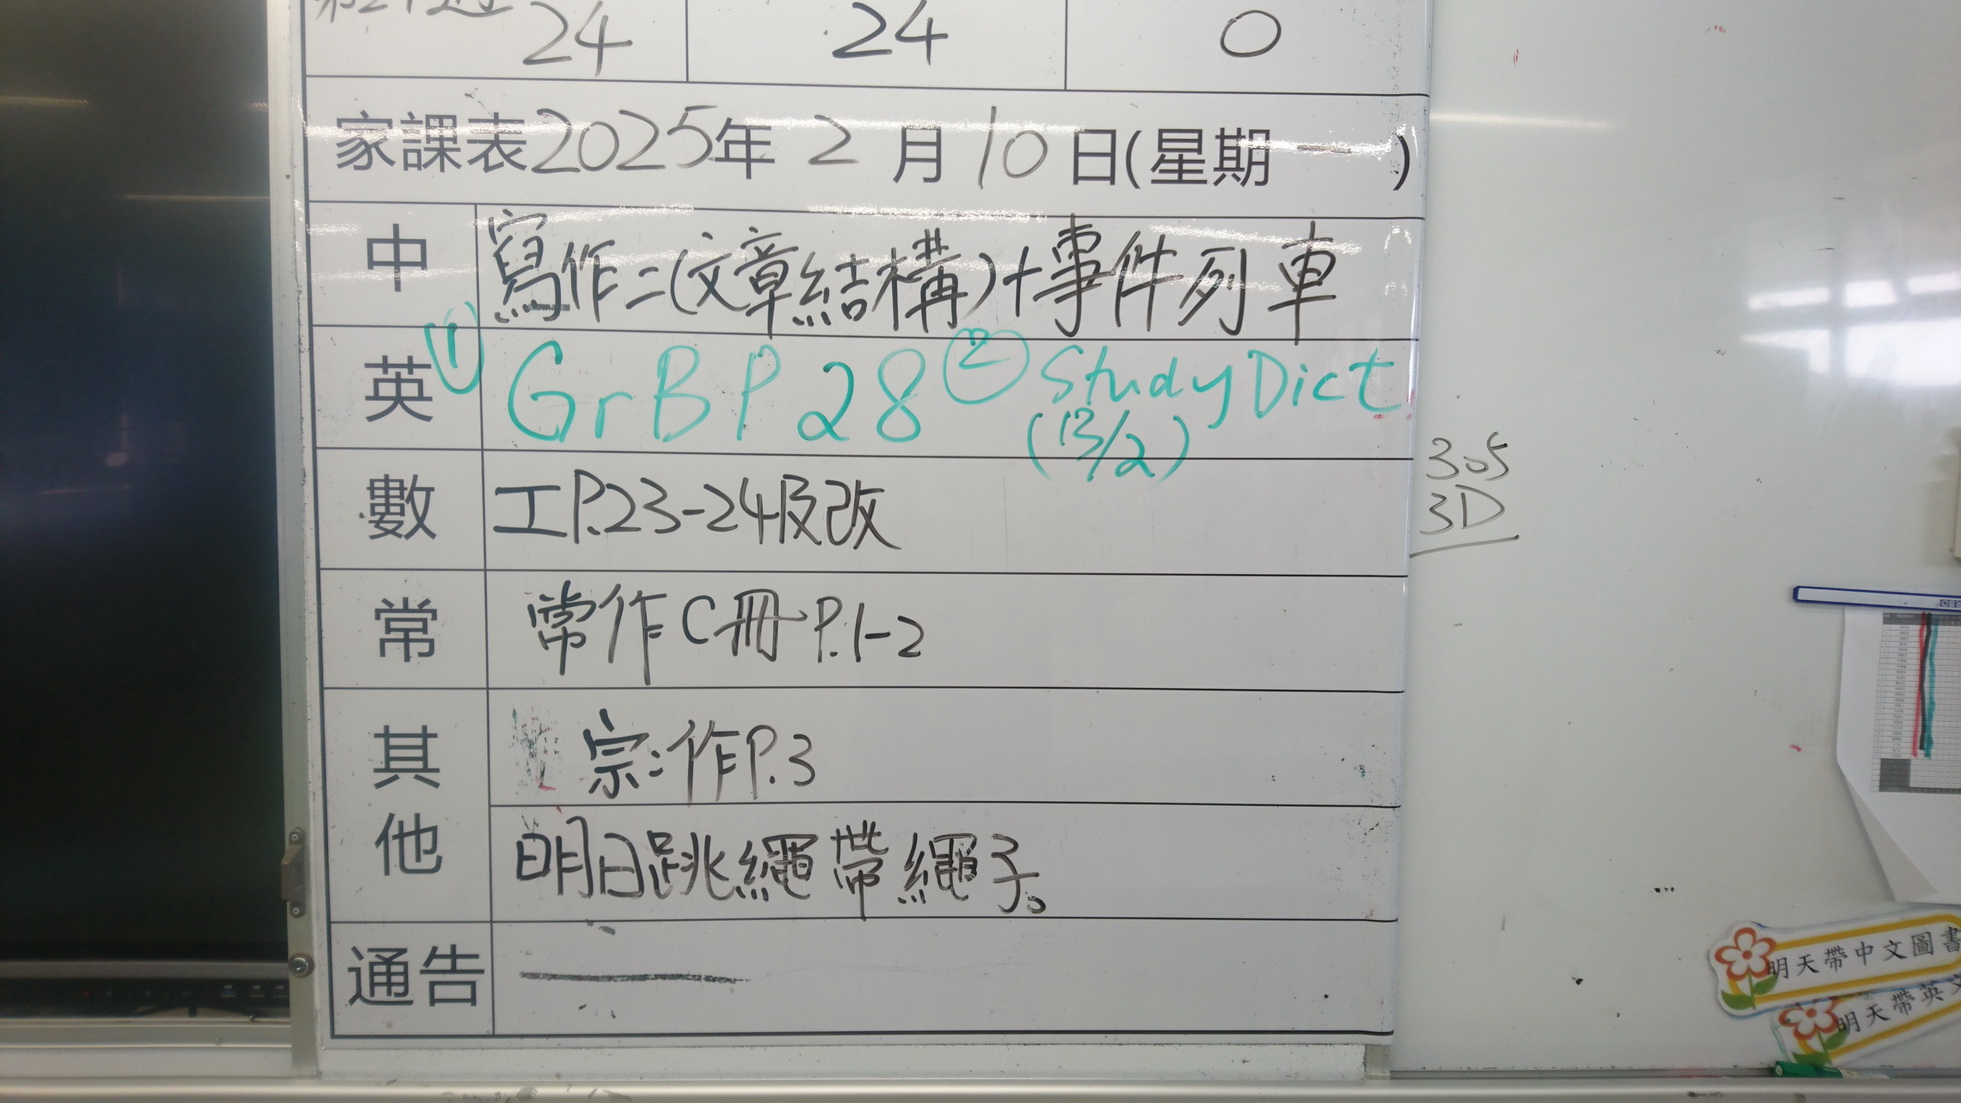 24 24 0
家課表2025年 2 月 10 日(星期 一 )
中 寫作二(文章結構)+事件列車
英 ① GrBP28 ② Study Dict
(13/2)
數 工P.23-24及改
305
3D
常 常作C冊P.1-2
其他 宗:作P.3
明日跳繩帶繩子。
通告 —
明天帶中文圖書
明天帶英文